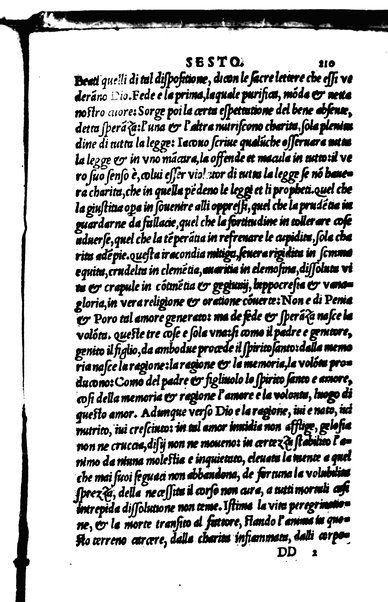 SESTO. 210
Beati quelli di tal dispositione, dicon le sacre lettere che essi ve
derāno Dio. Fede e la prima, laquale purifica, mōda & netta
nostro cuore: Sorge poi la certa espettatione del bene absente,
detta sperāza: l'una & l'altra nutriscono charita, sola plenitu
dine di tutta la legge: Iacouo scriue qualiche osseruara tutta
la legge & in vno mācara, la offende et macula in tutto: il ve
ro suo senso è, colui esser violator di tutta la legge se nō haue-
ra charita, che in quella pēdeno le leggi et li propheti. quel che
la giustitia opa in souenire alli oppressi, quel che la prudētia in
guardarne da fallacie, quel che la fortitudine in tollerare cose
aduerse, quel che la tēperātia in refrenare le cupidita, sola cha
rita adēpie. Questa iracondia mitiga, seuera rigidita in somma
equita, crudelta in clemētia, auaritia in elemosina, dissoluta vi
ta & crapule in cōtinētia & gegiunij, hippocresia & vana-
gloria, in vera religione & oratione cōuerte: Non e di Penia
& Poro tal amore generato: ma de fede & sperāza nasce la
volōta. queste tre cose e sola vna: si como il padre e genitore,
genito il figlio, da ambodue procede il spirito santo: dalla memo
ria nasce la ragione: la ragione & la memoria, la volōta pro
ducono: Como del padre & figliuolo lo spirito santo e amore,
cosi della memoria & ragione l'amore e la volonta, luogo di
questo amor. Adunque verso Dio e la ragione, iui e nato, iui
nutrito, iui cresciuto: in tal amor inuidia non afflige, gelosia
non ne cruccia, disij non ne moueno: in certezza stabilito l'a-
nimo da niuna molestia e inquietato, eleuata la mente a quel
che mai suoi seguaci non abbandona, de fortuna la volubilita
sprezza, della necessita il corso non cura, a tutti mortali casi
intrepida dissolutione non teme. Istima la vita peregrinatio-
ne, & la morte transito al fattore, stando l'anima in que-
sto terreno carcere, dalla charita infiammata, dalli corpo-
DD 2